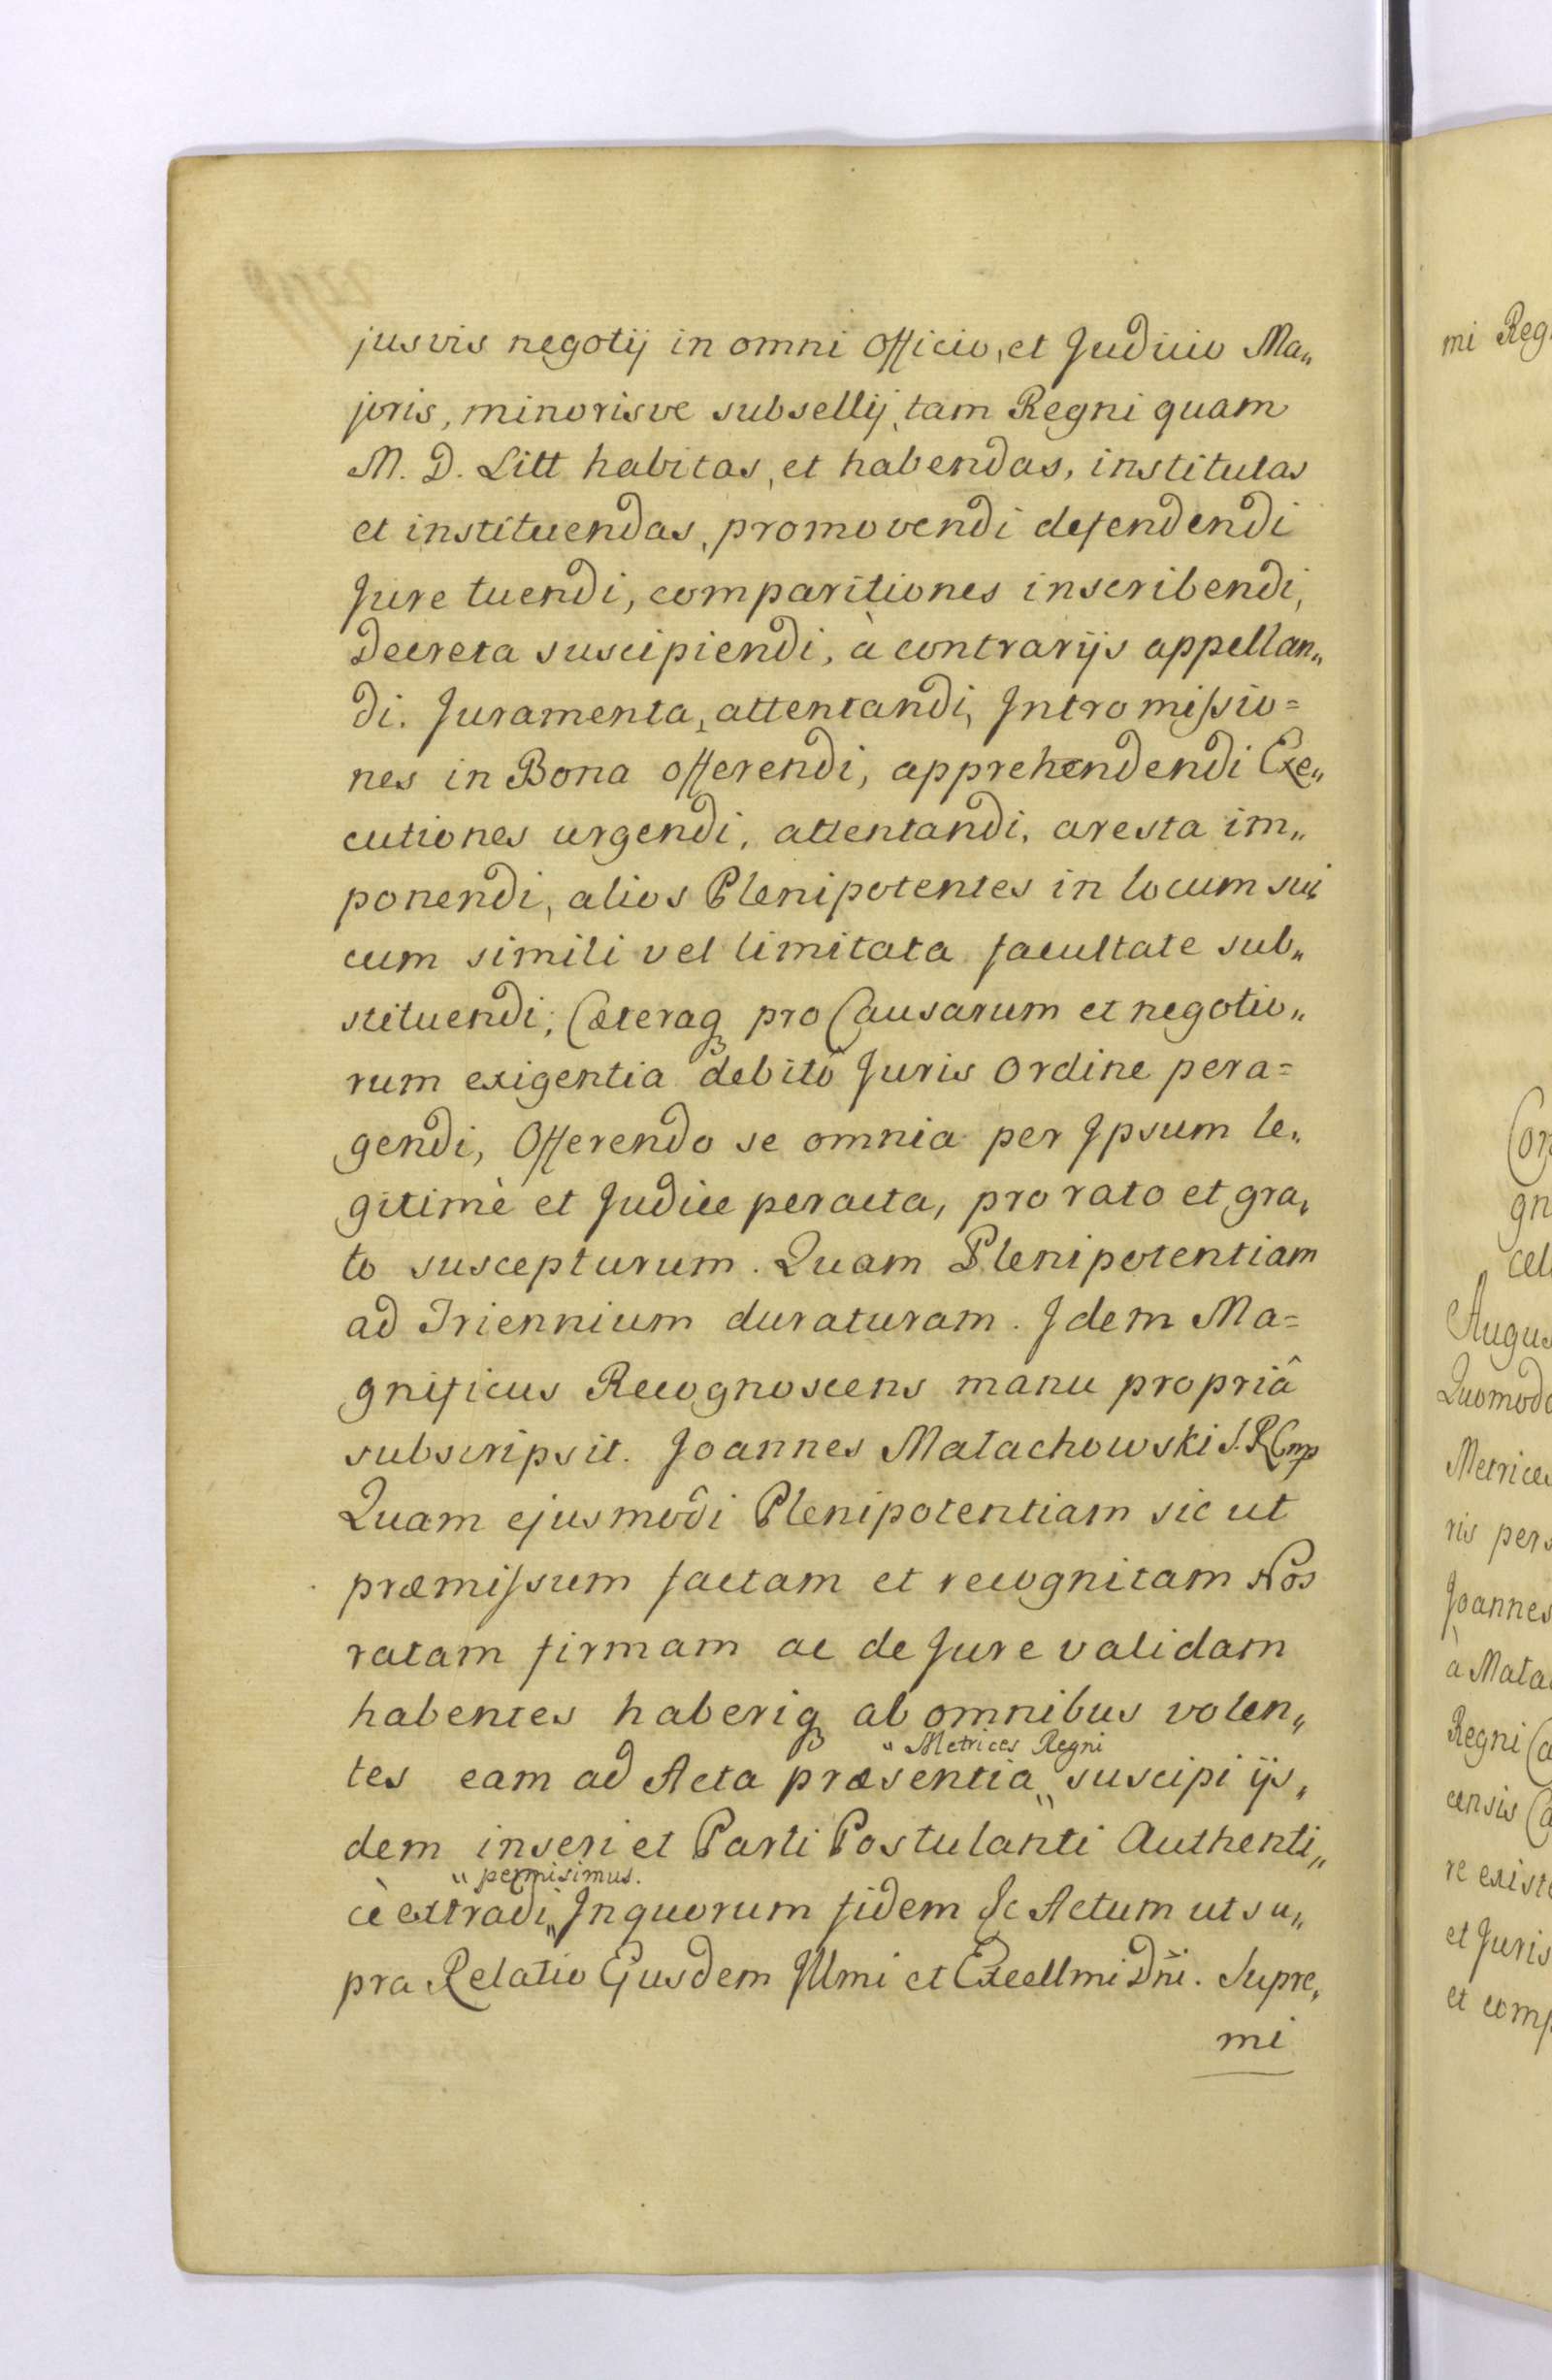 jusvis negotij in omni Officio, et Judicio Ma„
joris, minorisve subsellij, tam Regni quam
M. D. Litt habitas, et habendas, institutas
et instituendas, promovendi defendendi
Jure tuendi, comparitiones inscribendi,
Decreta suscipiendi, à contrarijs appellan„
di. Juramenta, attentandi, Intromissio=
nes in Bona offerendi, apprehendendi Exe„
cutiones urgendi, attentandi, aresta im„
ponendi, alios Plenipotentes in locum sui
cum simili vel limitata facultate sub„
stituendi; Cæteraq pro Causarum et negotio„
rum exigentia debitô Juris Ordine pera=
gendi, Offerendo se omnia per Ipsum le„
gitimè et Judice peracta, pro rato et gra„
to suscepturum. Quam Plenipotentiam
ad Triennium duraturam. Idem Ma=
gnificus Recognoscens manu propriâ
subscripsit. Joannes Małachowski S.R.C mp
Quam ejusmodi Plenipotentiam sic ut
præmissum factam et recognitam Nos
ratam firmam ac de Jure validam
habentes haberiq ab omnibus volen„
„ Metrices Regni
tes eam ad Acta præsentia „ suscipi ijs„
dem inseri et Parti Postulanti Authenti„
„ permisimus.
cè extradi „ In quorum fidem &c Actum ut su„
pra Relatio Ejusdem Illmi et Excellmi Dni. Supre„
mi
mi Reg
Con
gn
cel
Augus
Quomodo
Metrices
ris pers
Joannes
à Mała
Regni Ca
censis Ca
re existe
et Juris
et comp